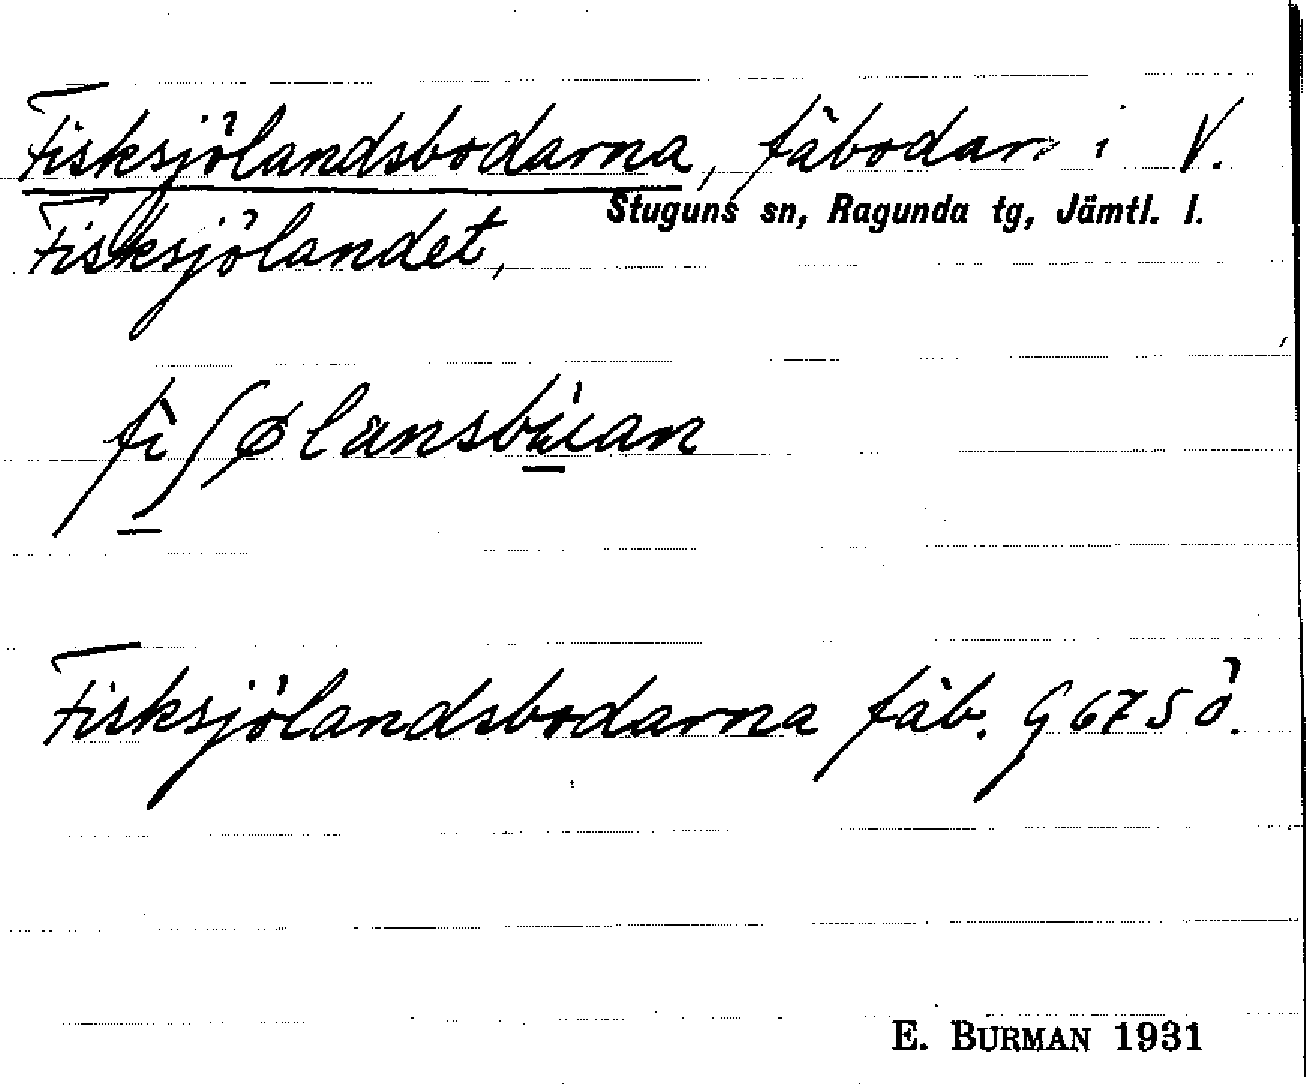 Fisksjölandsbodarna, fäbodar i V.
Stuguns sn, Ragunda tg, Jämtl. l.
Fisksjölandet,
Fisksjölandsbodarna fäb. G 67 S ö.
E. BURMAN 1931